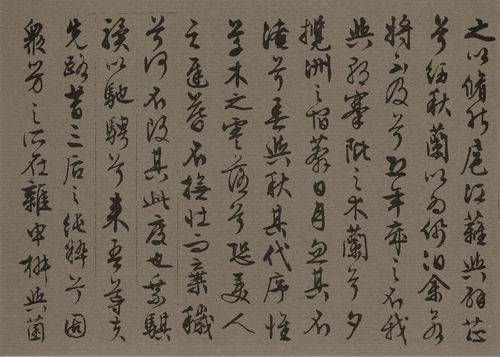 之以脩能扈江蘺與辟芷
兮紉秋蘭以為佩汩余若
將不及兮恐年歲之不我
與朝搴阰之木蘭兮夕
攬洲之宿莽日月忽其不
淹兮春與秋其代序惟
草木之零落兮恐美人
之遲暮不撫壯而棄穢
兮何不改其此度也乘騏
驥以馳騁兮來吾導夫
先路昔三后之純粹兮固
眾芳之所在雜申椒與菌